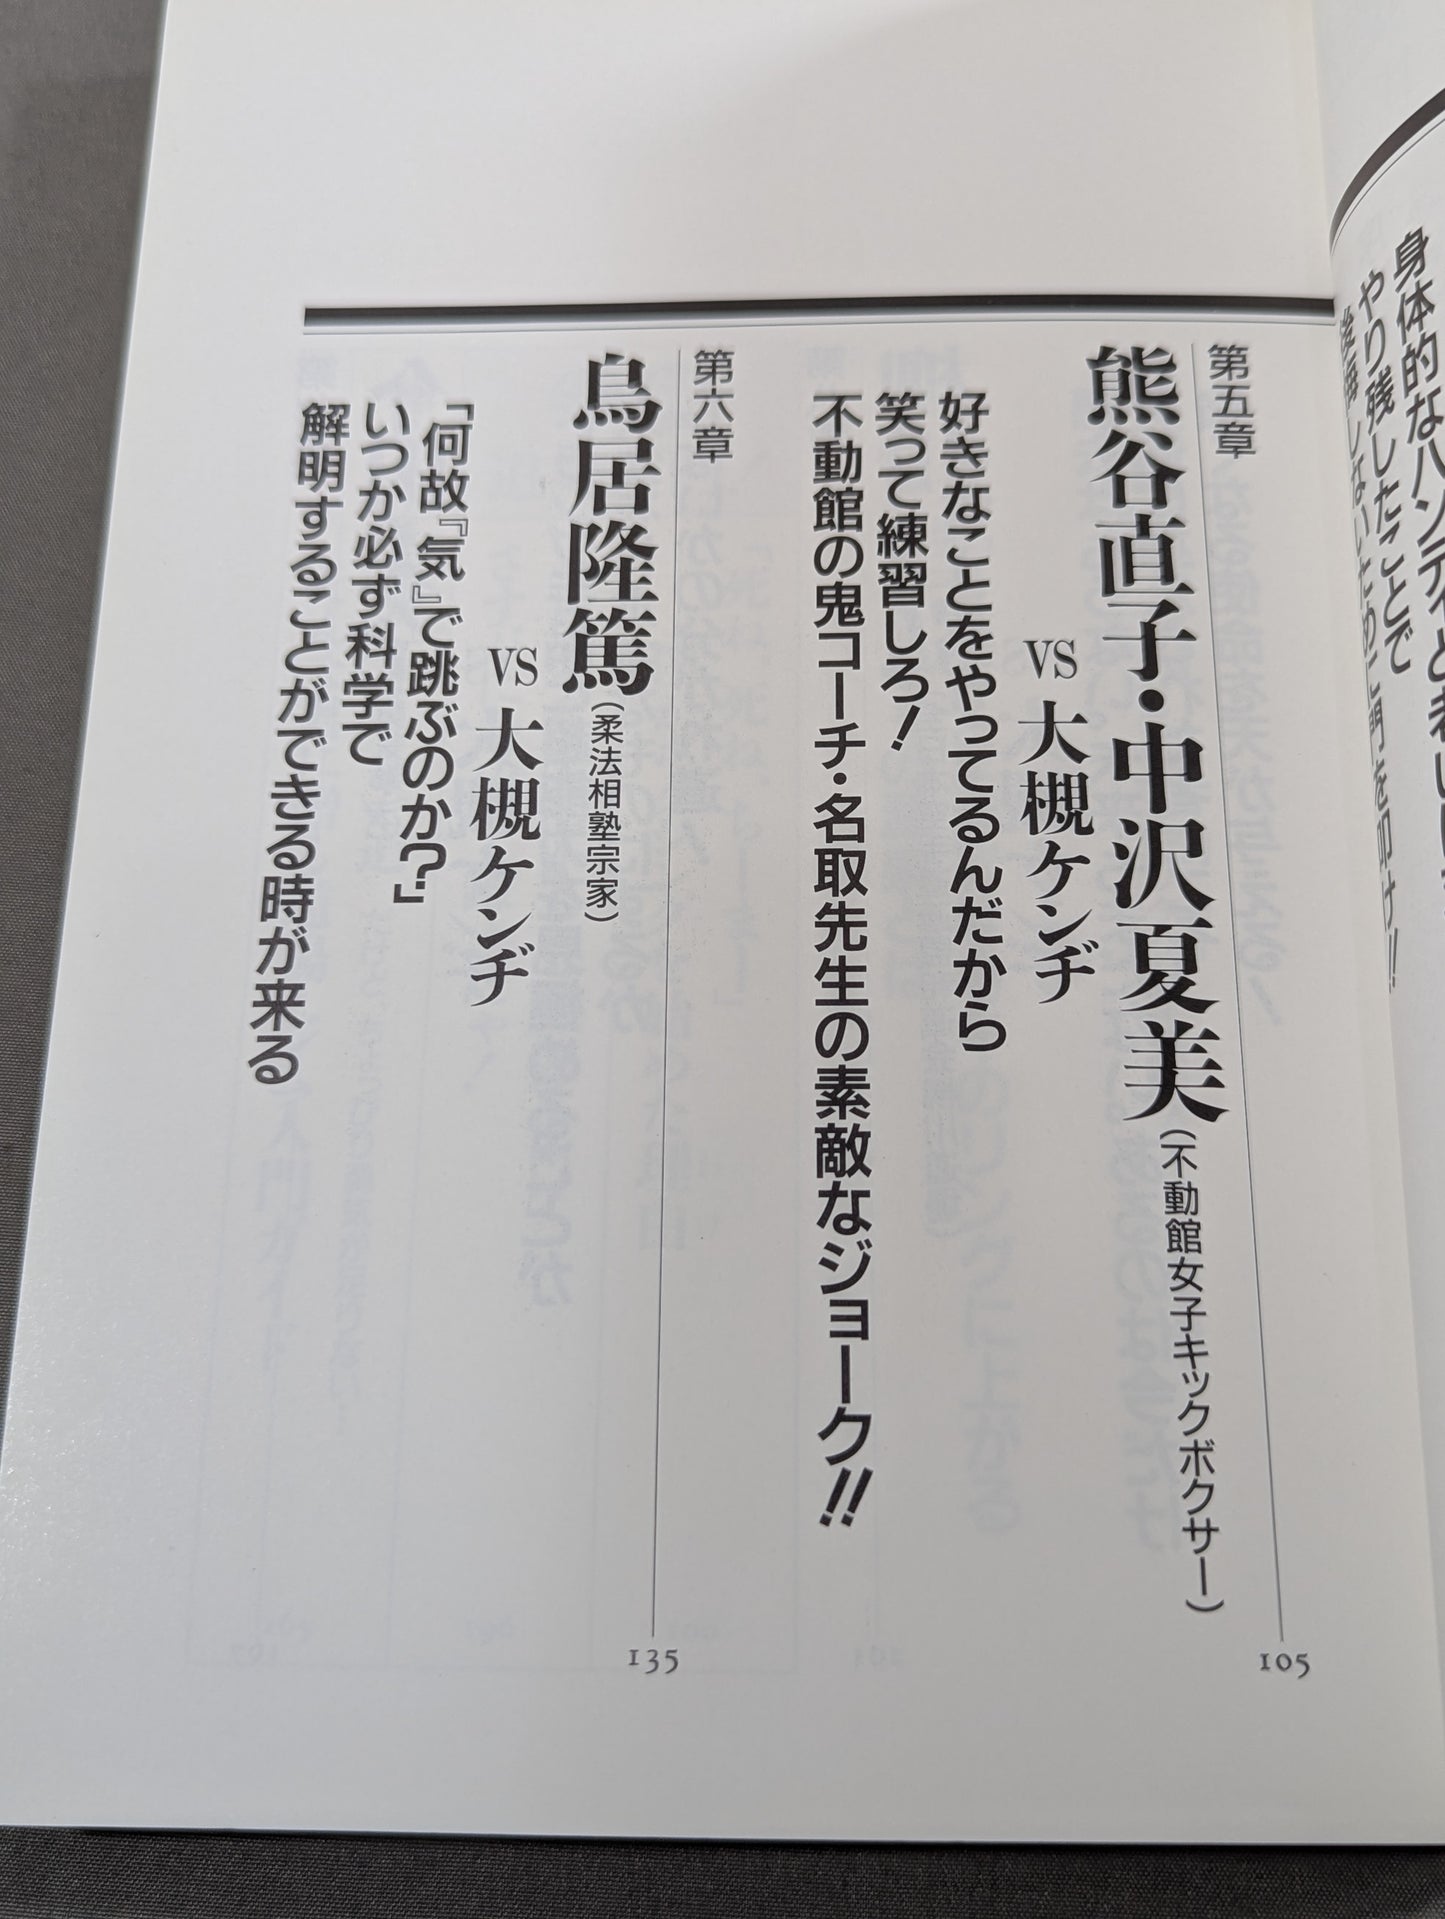 身体的なハンディと
やり残したことで
後悔しないために門を叩け!!
第五章
熊谷直子・中沢夏美(不動館女子キックボクサー)
VS 大槻ケンヂ
好きなことをやってるんだから
笑って練習しろ!
不動館の鬼コーチ・名取先生の素敵なジョーク!!
105
第六章
鳥居隆篤(柔法相塾宗家)
VS 大槻ケンヂ
「何故『気』で跳ぶのか?」
いつか必ず科学で
解明することができる時が来る
135